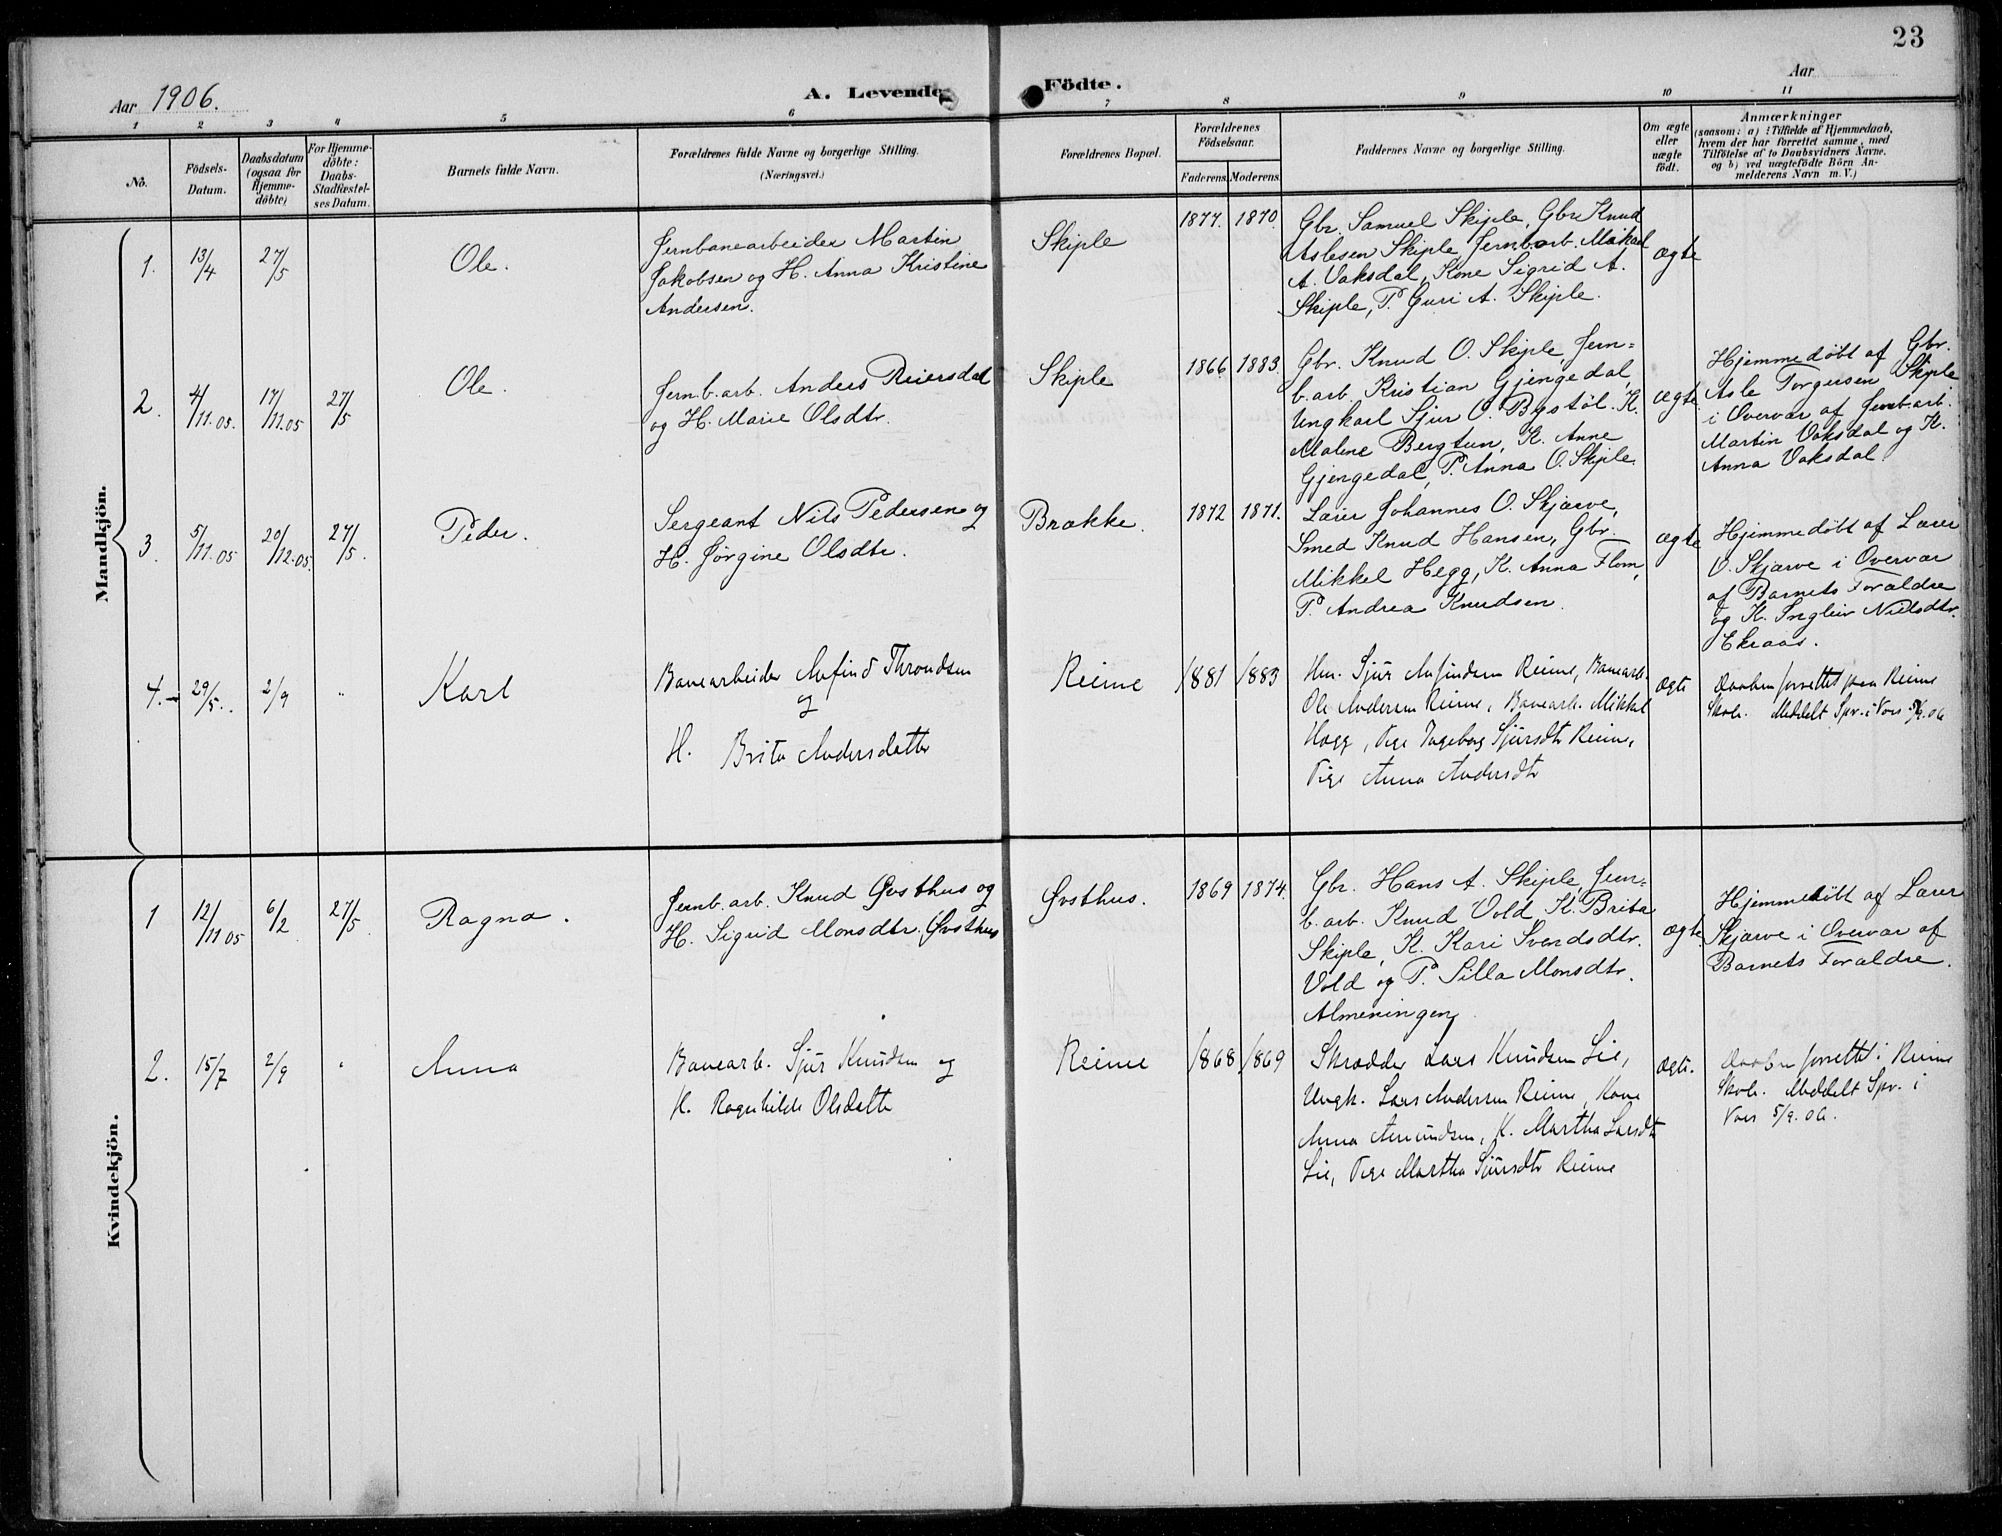 23
Aar 1906.
A. Levende Födte.
Aar
1
2
3
4
5
6
7
8
9
10
11
No.
Födsels-
Datum.
Daabsdatum
(ogsaa for
Hjemme-
døbte)
For Hjemme-
døbte:
Daabs-
Stadfæstel-
ses Datum.
Barnets fulde Navn.
Forældrenes fulde Navne og borgerlige Stilling.
(Næringsvei.)
Forældrenes Bopæl.
Forældrenes
Födselsaar.
Faderens.
Moderens.
Faddernes Navne og borgerlige Stilling.
Om ægte
eller
uægte
födt.
Anmærkninger
(saasom: a) i Tilfælde af Hjemmedaab,
hvem der har forrettet samme, med
Tilföielse af to Daabsvidners Navne,
og b) ved uægtefödte Börn An-
melderens Navn m. V.)
Mandkjön.
1.
13/4
27/5
Ole.
Jernbanearbeider Martin
Jakobsen og H. Anna Kristine
Andersen.
Skiple
1877.
1870.
Gbr. Samuel Skiple, Gbr Knud
Aslesen Skiple, Jernb.arb. Mikael
A. Vaksdal, Kone Sigrid A.
Skiple, P. Guri A. Skiple.
ægte
2.
4/11.05.
17/11.05
27/5
Ole.
Jernb.arb. Anders Reiersdal
og H. Marie Olsdtr.
Skiple
1866
1883.
Gbr. Knud O. Skiple, Jern=
b.arb. Kristian Gjengedal,
Ungkarl Sjur O. Bystöl. K.
Malene Bergtun, K. Anne
Gjengedal, P. Anna O. Skiple.
ægte.
Hjemmedöbt af Gbr.
Asle Torgersen Skiple
i Overvær af Jernb.arb.
Martin Vaksdal og K.
Anna Vaksdal.
3.
5/11.05
20/12.05.
27/5.
Peder.
Sergeant Nils Pedersen og
H. Jørgine Olsdtr.
Brække.
1872
1871.
Lærer Johannes O. Skjærve,
Smed Knud Hansen, Gbr.
Mikkel Hegg, K. Anna Flom,
P. Andrea Knudsen.
ægte
Hjemmedöbt af Lærer
O. Skjærve i Overvær
af Barnets Forældre
og K. Ingleiv Nielsdtr.
Ekraas.
4.
29/5.
2/9
"
Karl
Banearbeider Anfind Throndsen
og
H. Brita Andersdatter
Reime
1881
1883
Hm. Sjur Anfindsen Reime, Banearb.
Ole Andersen Reime, Banearb. Mikkel
Hægg, Pige Ingeborg Sjursdtr Reime,
Pige Anna Andersdtr
Ægte
Daaben forrettet paa Reime
Skole. Meddelt Spr. i Voss 5/9.06
Kvindekjön.
1
12/11 05
6/2
27/5.
Ragna.
Jernb.arb. Knud Øvsthus og
H. Sigrid Monsdtr. Øvsthus
Øvsthus.
1869
1874.
Gbr. Hans A. Skiple, Jern=
b.arb. Knud Vold, K. Brita
Skiple, K. Kari Svendsdtr.
Vold og P. Silla Monsdtr.
Almeningen
ægte.
Hjemmedöbt af Lærer
Skjærve i Overvær af
Barnets Forældre.
2.
15/7
2/9
"
Anna
Banearb. Sjur Knudsen og
H. Ragnhilde Olsdatter
Reime
1868
1869
Skrædder Lars Knudsen Lie,
Ungk. Lars Andersen Reime, Kone
Anna Amundsen, K. Martha Larsdtr
Lie, Pige Martha Sjursdtr Reime
Ægte.
Daaben forrettet i Reime
Skole. Meddelt Spr. i
Voss 5/9.06.